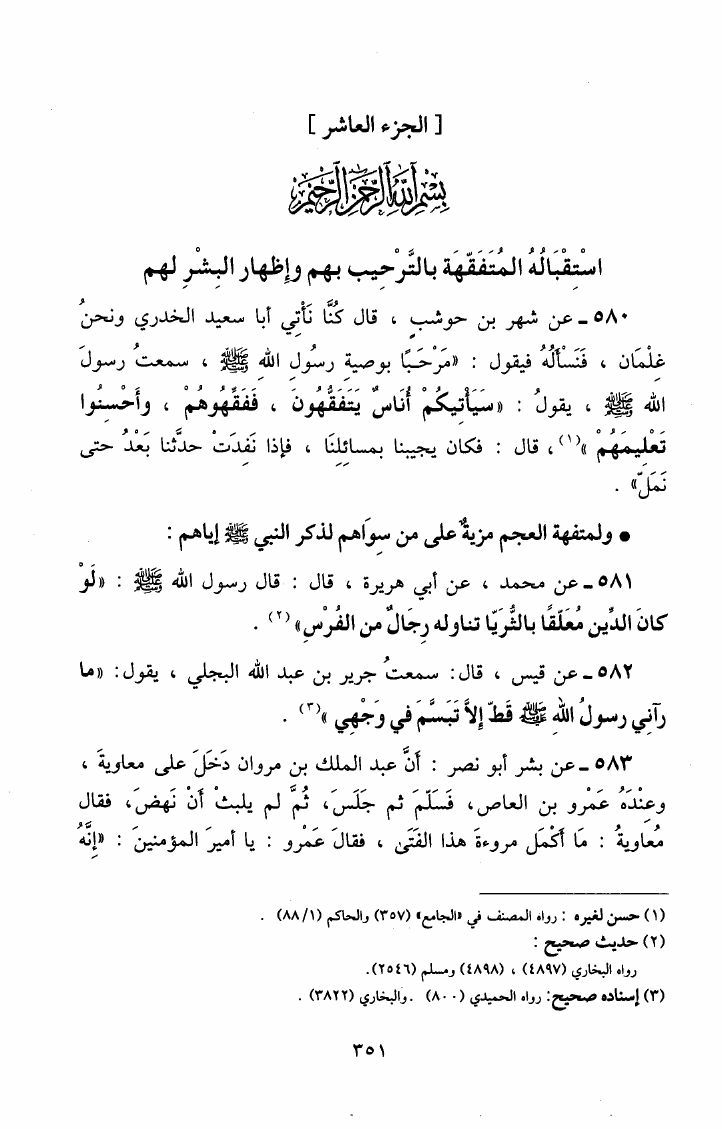 [ الجزء العاشر ]
بِسْمِ اللَّهِ الرَّحْمَنِ الرَّحِيمِ
اسْتِقْبَالُهُ المُتَفَقِّهَة بالتَّرْحِيب بهم وإظهار البِشْرِ لهم
٥٨٠ ـ عن شهر بن حوشبٍ ، قال كُنَّا نَأْتِي أبا سعيد الخدري ونحنُ
غِلْمَان ، فَنَسْأَلُهُ فيقول : «مَرْحَبًا بوصيةِ رسُولِ اللهِ ﷺ ، سمعتُ رسولَ
الله ﷺ ، يقولُ : «سَيَأْتِيكُمْ أُنَاسٌ يَتَفَقُّهُونَ ، فَفَقِّهُوهُمْ ، وأَحْسِنُوا
تَعْلِيمَهُمْ »(١)، قال : فكان يجيبنا بمسائلِنَا ، فإذا نَفِدَتْ حدثَّنا بَعْدُ حتى
نَمَلّ» .
● ولمتفهة العجم مزيةٌ على من سوَاهم لذكر النبي ﷺ إياهم :
٥٨١ ـ عن محمد ، عن أبي هريرة ، قال : قال رسول الله ﷺ : «لَوْ
كانَ الدِّين مُعَلّقًا بالثُّرَيّا تناوله رِجَالٌ من الفُرْسِ»(٢) .
٥٨٢ ـ عن قيس ، قال: سمعتُ جرير بن عبد الله البجلي ، يقول: «ما
رآني رسولُ اللهِ ﷺ قَطّ إلاَّ تَبَسَّمَ في وَجْهِي »(٣) .
٥٨٣ ـ عن بشر أبو نصر : أنَّ عبد الملك بن مروان دَخَلَ على معاويةَ ،
وعِنْدَهُ عَمْرو بن العاص، فَسَلّمَ ثم جلَسَ، ثُمَّ لم يلبثْ أنْ نَهضَ، فقال
مُعاويةُ : مَا أَكْمَل مروءةَ هذا الفَتَىٰ ، فقالَ عَمْرو : يا أميرَ المؤمنينَ : «إنَّهُ
(١) حسن لغيره : رواه المصنف في «الجامع» (٣٥٧) والحاكم (٨٨/١) .
(٢) حديث صحيح :
رواه البخاري (٤٨٩٧) ، (٤٨٩٨) ومسلم (٢٥٤٦).
(٣) إسناده صحيح: رواه الحميدي (٨٠٠) . والبخاري (٣٨٢٢) .
٣٥١